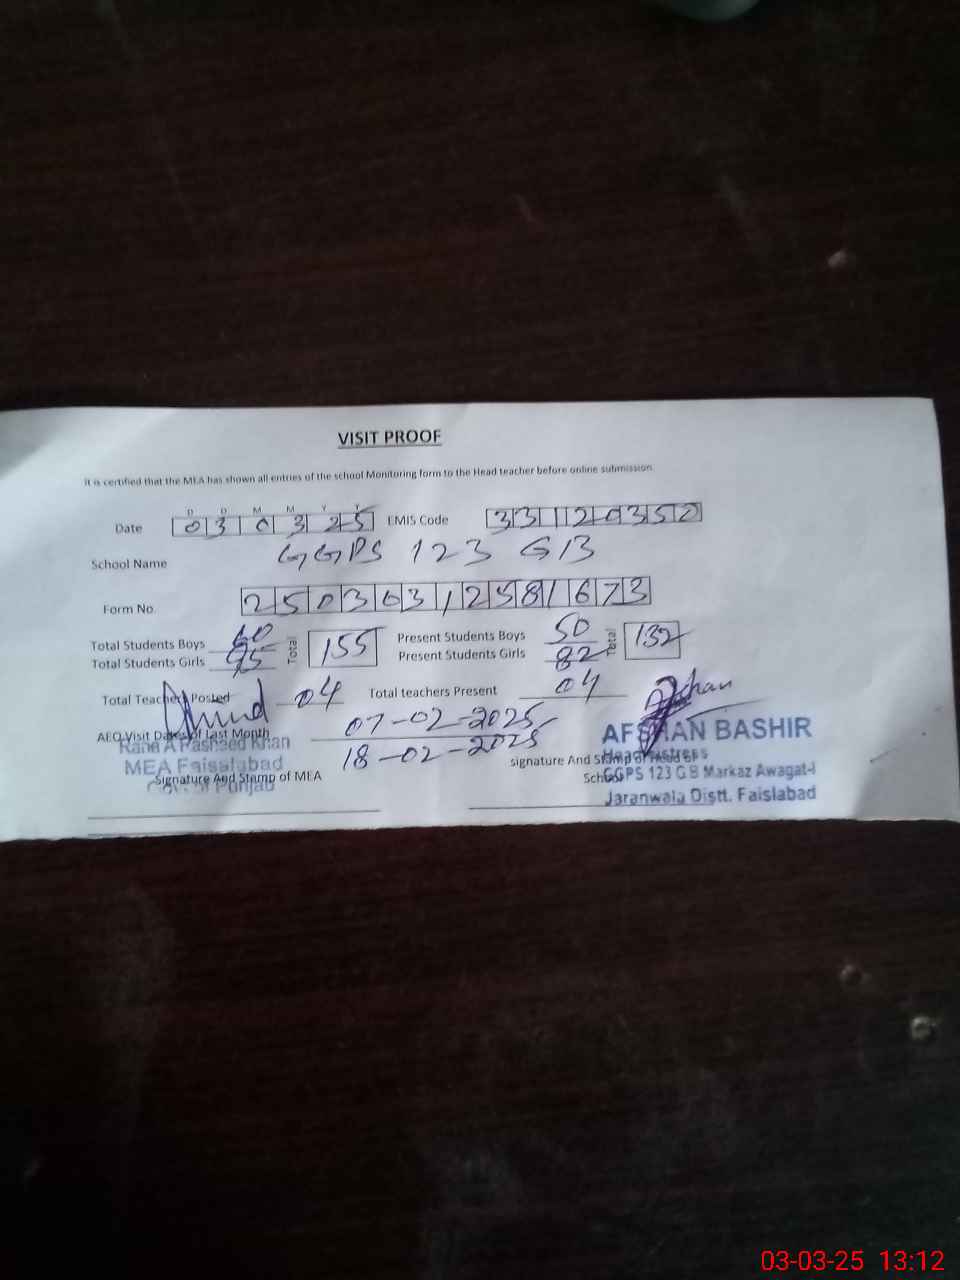 VISIT PROOF
It is certified that the MEA has shown all entries of the school Monitoring form to the Head teacher before online submission
D D M M Y Y
Date 03 03 25 EMIS Code 33120350
School Name GGPS 123 GB
Form No. 25030312581673
Total Students Boys 60 Total 155 Present Students Boys 50 Total 132
Total Students Girls 95 Present Students Girls 82
Total Teachers Posted 04 Total teachers Present 04
AEO Visit Dates of Last Month 07-02-2025
18-02-2025
Rana A Rasheed Khan
MEA Faisalabad
Govt of Punjab
Signature And Stamp of MEA
Afshan
AFSHAN BASHIR
Headmistress
GGPS 123 G.B Markaz Awagat-I
Jaranwala Distt. Faislabad
signature And Stamp of Head of
School
03-03-25 13:12